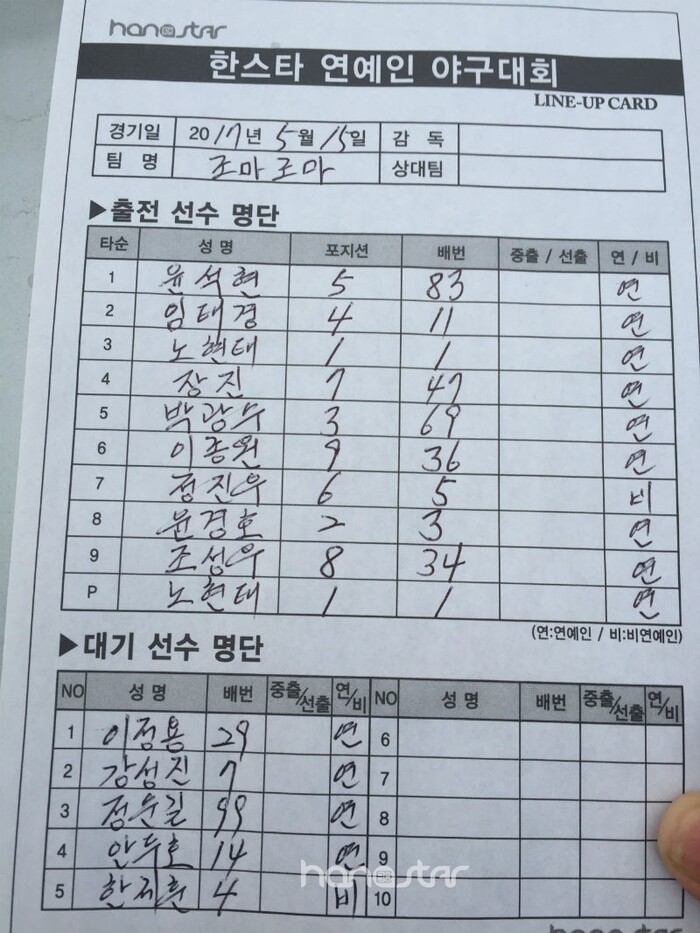 hanostar
한스타 연예인 야구대회
LINE-UP CARD
경기일 2017년 5월 15일 감 독
팀 명 조마조마 상대팀
▶출전 선수 명단
타순 성 명 포지션 배번 중출 / 선출 연 / 비
1 윤석현 5 83 연
2 임태경 4 11 연
3 노현태 1 1 연
4 장진 7 47 연
5 박광수 3 69 연
6 이종원 9 36 연
7 정진우 6 5 비
8 윤경호 2 3 연
9 조성우 8 34 연
P 노현태 1 1 연
(연:연예인 / 비:비연예인)
▶대기 선수 명단
NO 성 명 배번 중출/선출 연/비 NO 성 명 배번 중출/선출 연/비
1 이정용 29 연 6
2 강성진 7 연 7
3 정운길 99 연 8
4 안두호 14 연 9
5 한저훈 4 비 10
hanostar
hanostar